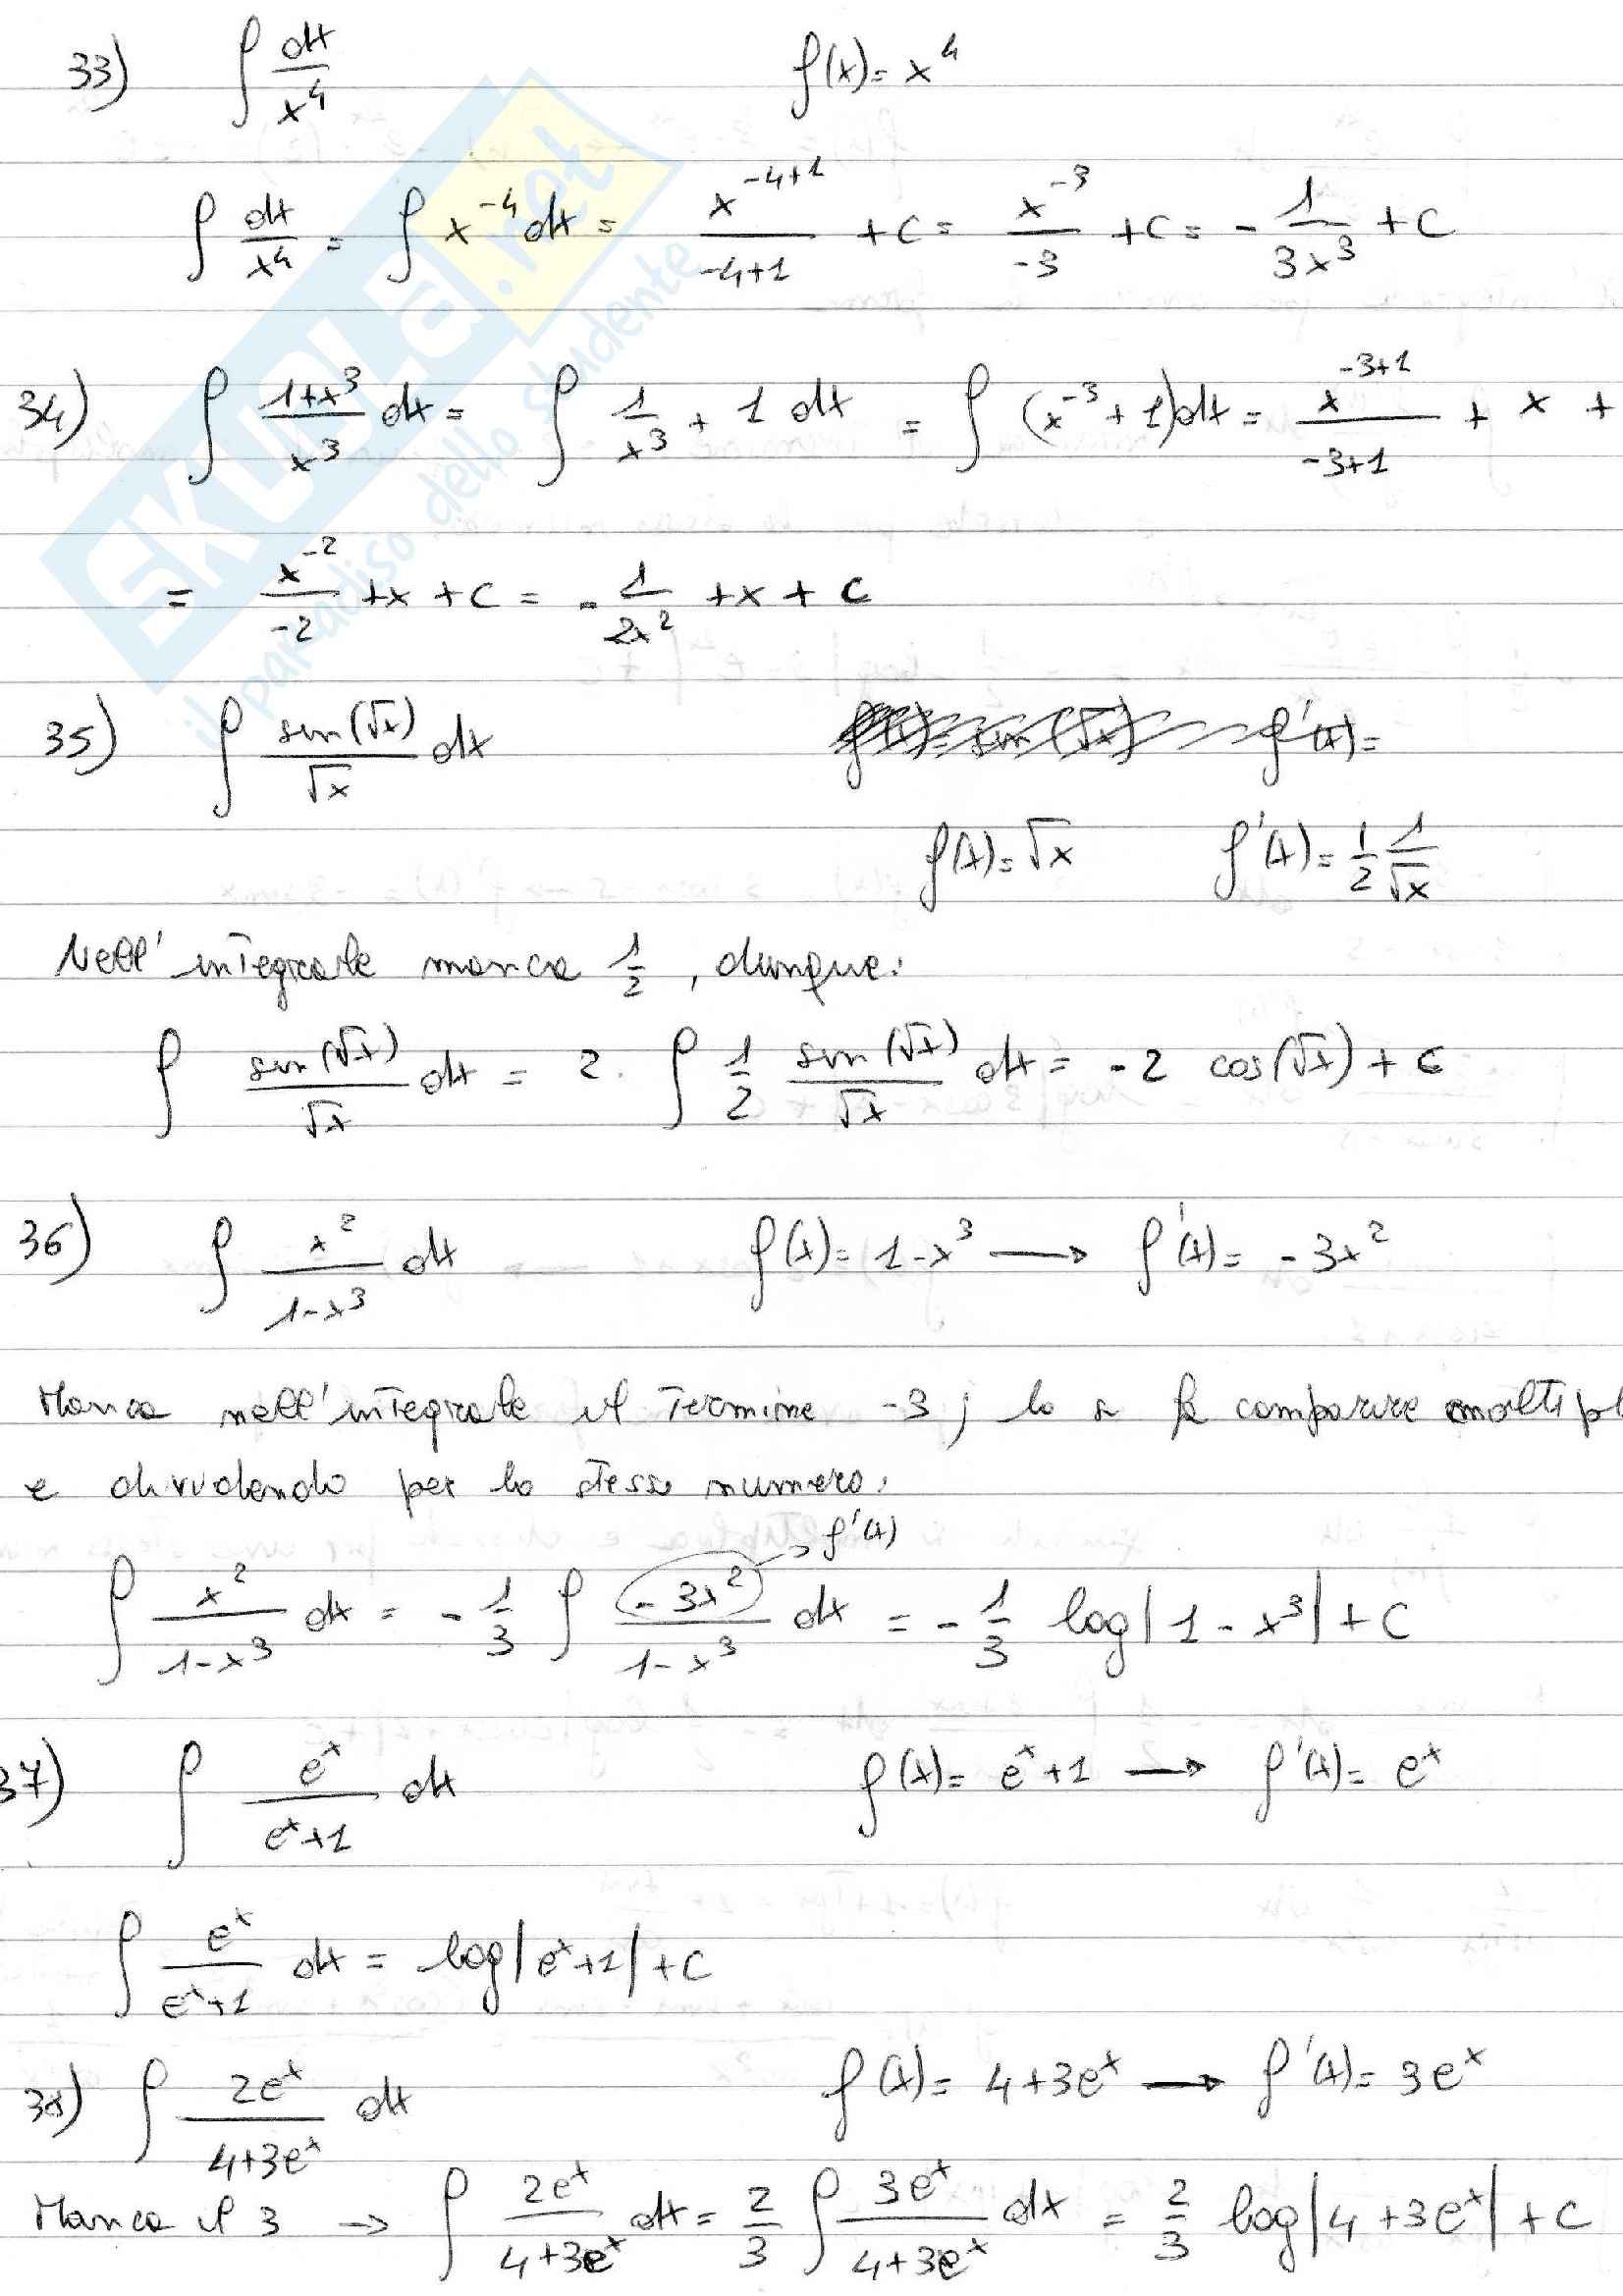 33) ∫ dx/x⁴ f(x)= x⁴
∫ dx/x⁴ = ∫ x⁻⁴ dx = x⁻⁴⁺¹/-4+1 + C = x⁻³/-3 + C = - 1/3x³ + C
34) ∫ 1+x³/x³ dx = ∫ 1/x³ + 1 dx = ∫ (x⁻³ + 1)dx = x⁻³⁺¹/-3+1 + x +
= x⁻²/-2 + x + C = - 1/2x² + x + C
35) ∫ sin(√x)/√x dx f'(x)=
f(x)= √x f'(x)= 1/2 1/√x
Nell'integrale manca 1/2, dunque:
∫ sin(√x)/√x dx = 2· ∫ 1/2 sin(√x)/√x dx = -2 cos(√x) + C
36) ∫ x²/1-x³ dx f(x)= 1-x³ → f'(x)= -3x²
Manca nell'integrale il termine -3; lo si fa comparire moltipl
e dividendo per lo stesso numero:
∫ x²/1-x³ dx = - 1/3 ∫ -3x²/1-x³ dx = - 1/3 log|1-x³| + C → f'(x)
37) ∫ eˣ/eˣ+1 dx f(x)= eˣ+1 → f'(x)= eˣ
∫ eˣ/eˣ+1 dx = log|eˣ+1| + C
38) ∫ 2eˣ/4+3eˣ dx f(x)= 4+3eˣ → f'(x)= 3eˣ
Manca il 3 → ∫ 2eˣ/4+3eˣ dx = 2/3 ∫ 3eˣ/4+3eˣ dx = 2/3 log|4+3eˣ| + C
SKUOLA.net
il paradiso dello studente